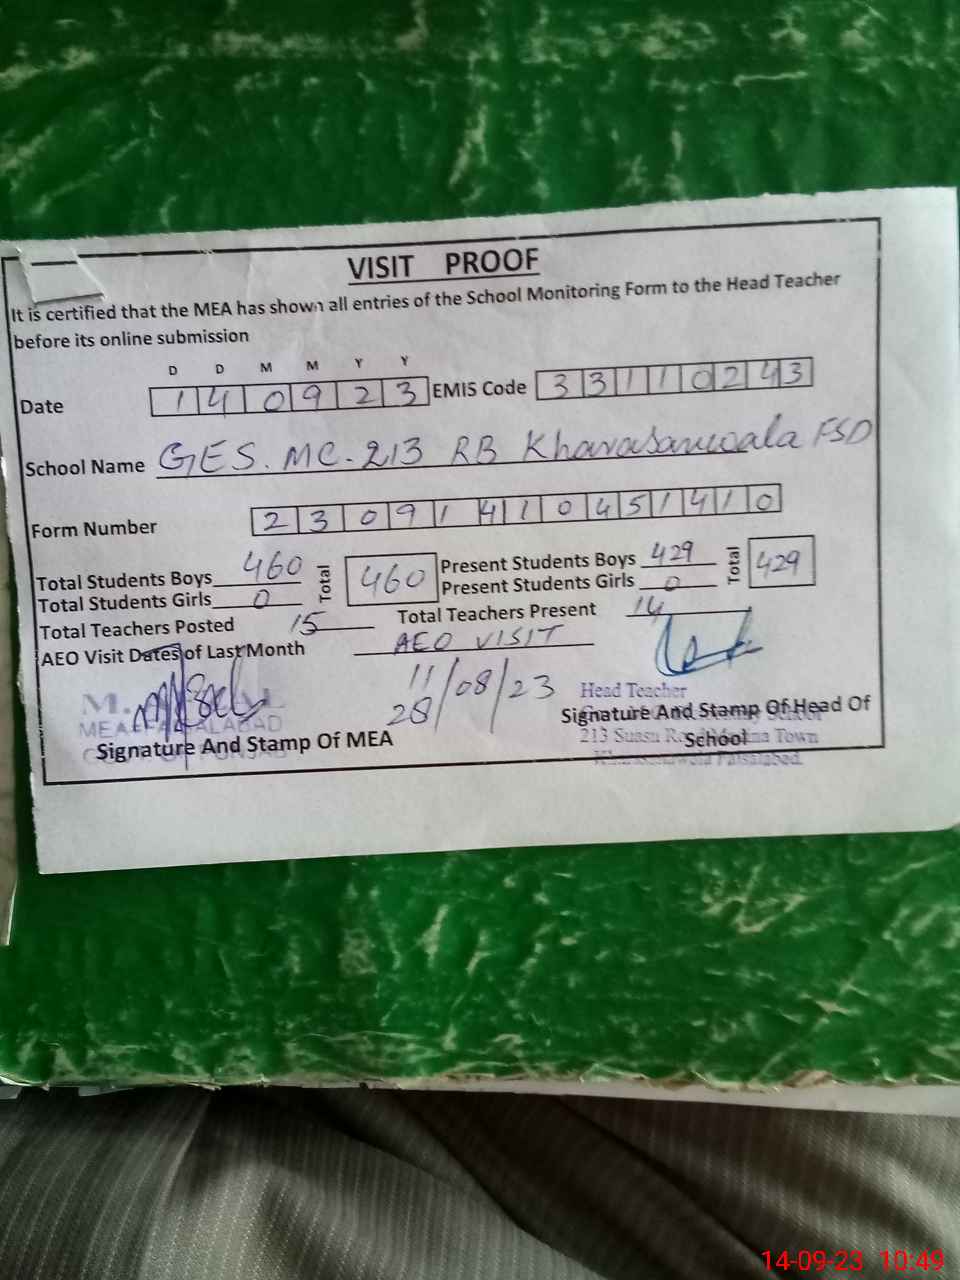 VISIT PROOF
It is certified that the MEA has shown all entries of the School Monitoring Form to the Head Teacher
before its online submission
D D M M Y Y
Date 1 4 0 9 2 3 EMIS Code 3 3 1 1 0 2 4 3
School Name GES. MC. 213 RB Kharasanwala FSD
Form Number 2 3 0 9 1 4 1 0 4 5 1 4 1 0
Total Students Boys 460 Total 460 Present Students Boys 429 Total 429
Total Students Girls 0 Present Students Girls 0
Total Teachers Posted 15 Total Teachers Present 14
AEO Visit Dates of Last Month AEO VISIT
11/08/23
28
M.
MEA
Head Teacher
Signature And Stamp Of MEA
Signature And Stamp Of Head Of
School
213 Town
Faisalabad
14-09-23 10:49